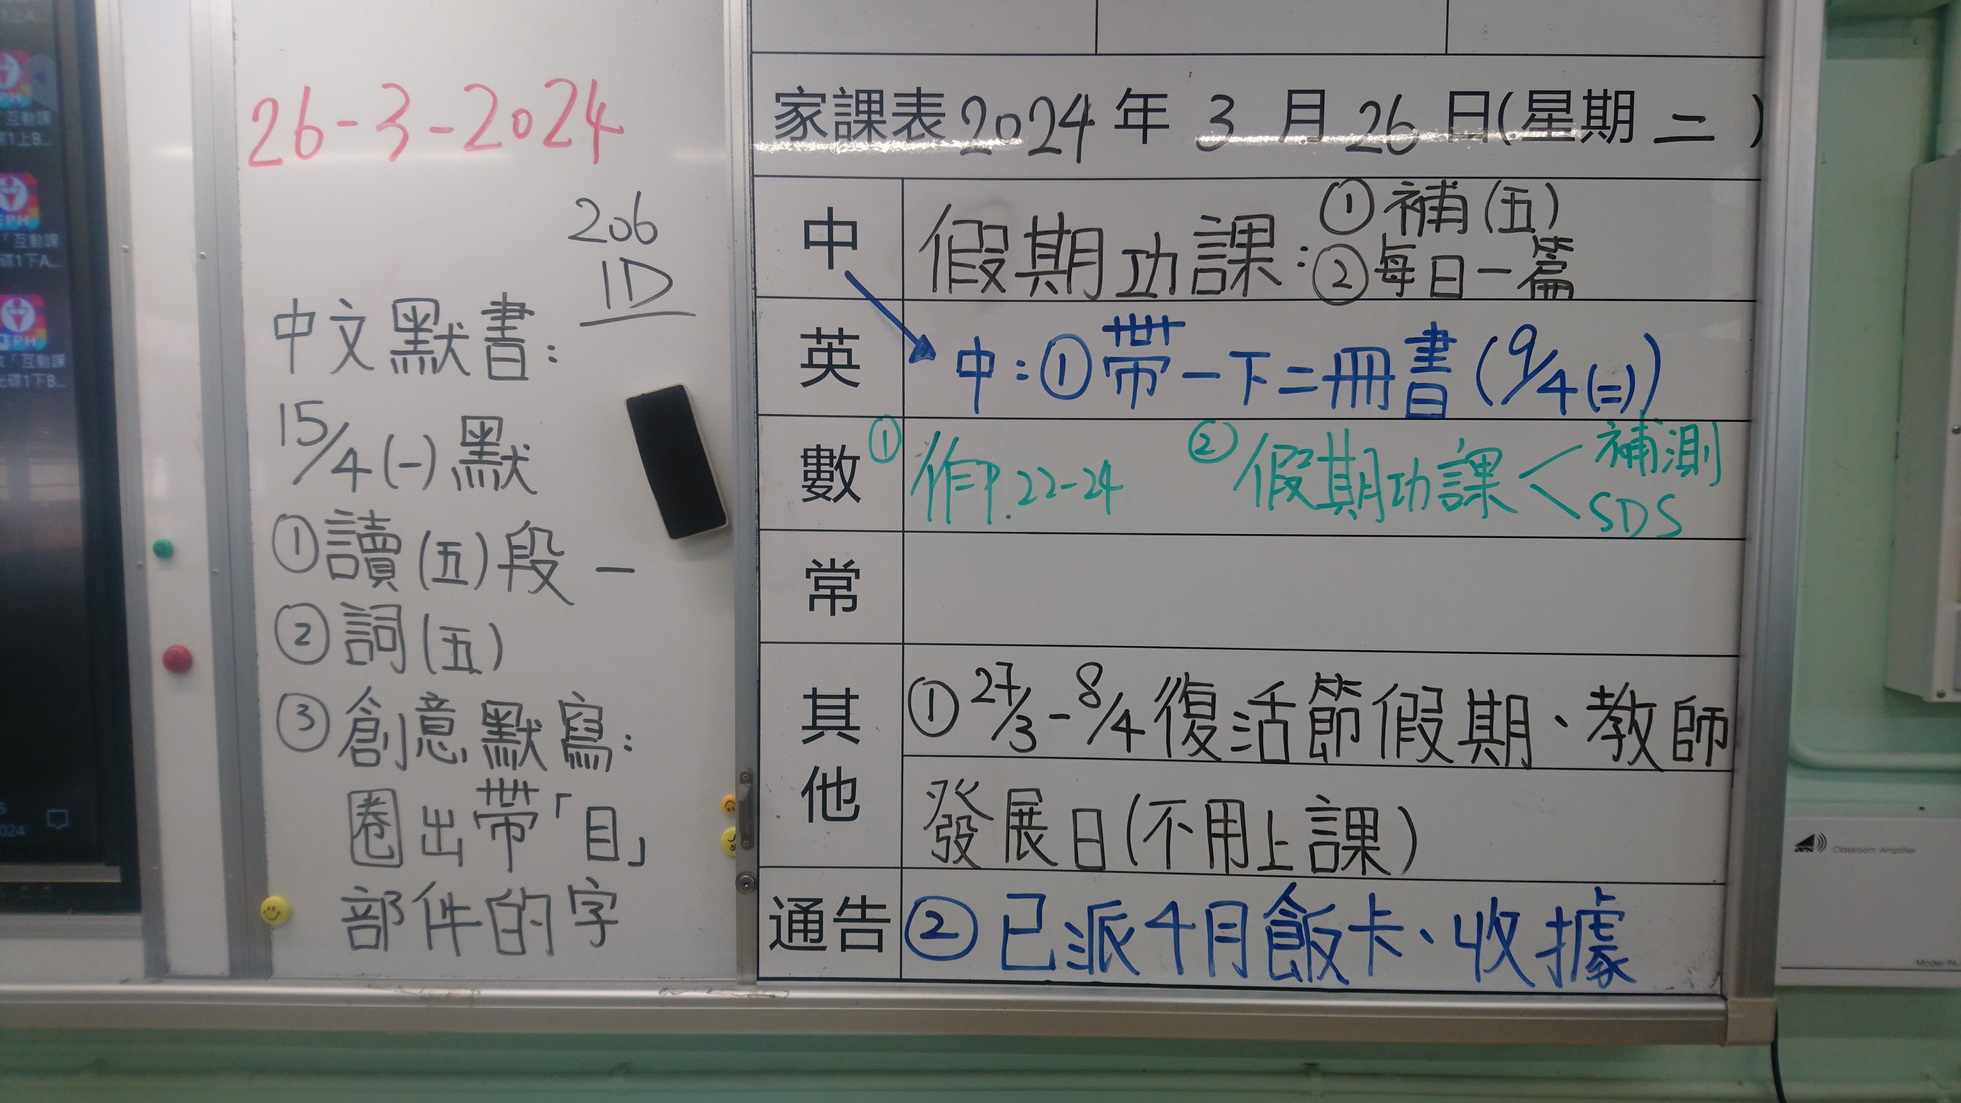 26-3-2024
206
1D
中文默書:
15/4(一)默
①讀(五)段一
②詞(五)
③創意默寫:
圈出帶「目」
部件的字
家課表2024年3月26日(星期二)
中 假期功課:①補(五)
②每日一篇
英 中:①帶一下二冊書(9/4(二))
數 ①作P.22-24 ②假期功課<補測
SDS
常
其他 ①27/3-8/4復活節假期、教師
發展日(不用上課)
通告 ②已派4月飯卡、收據
Classroom Amplifier